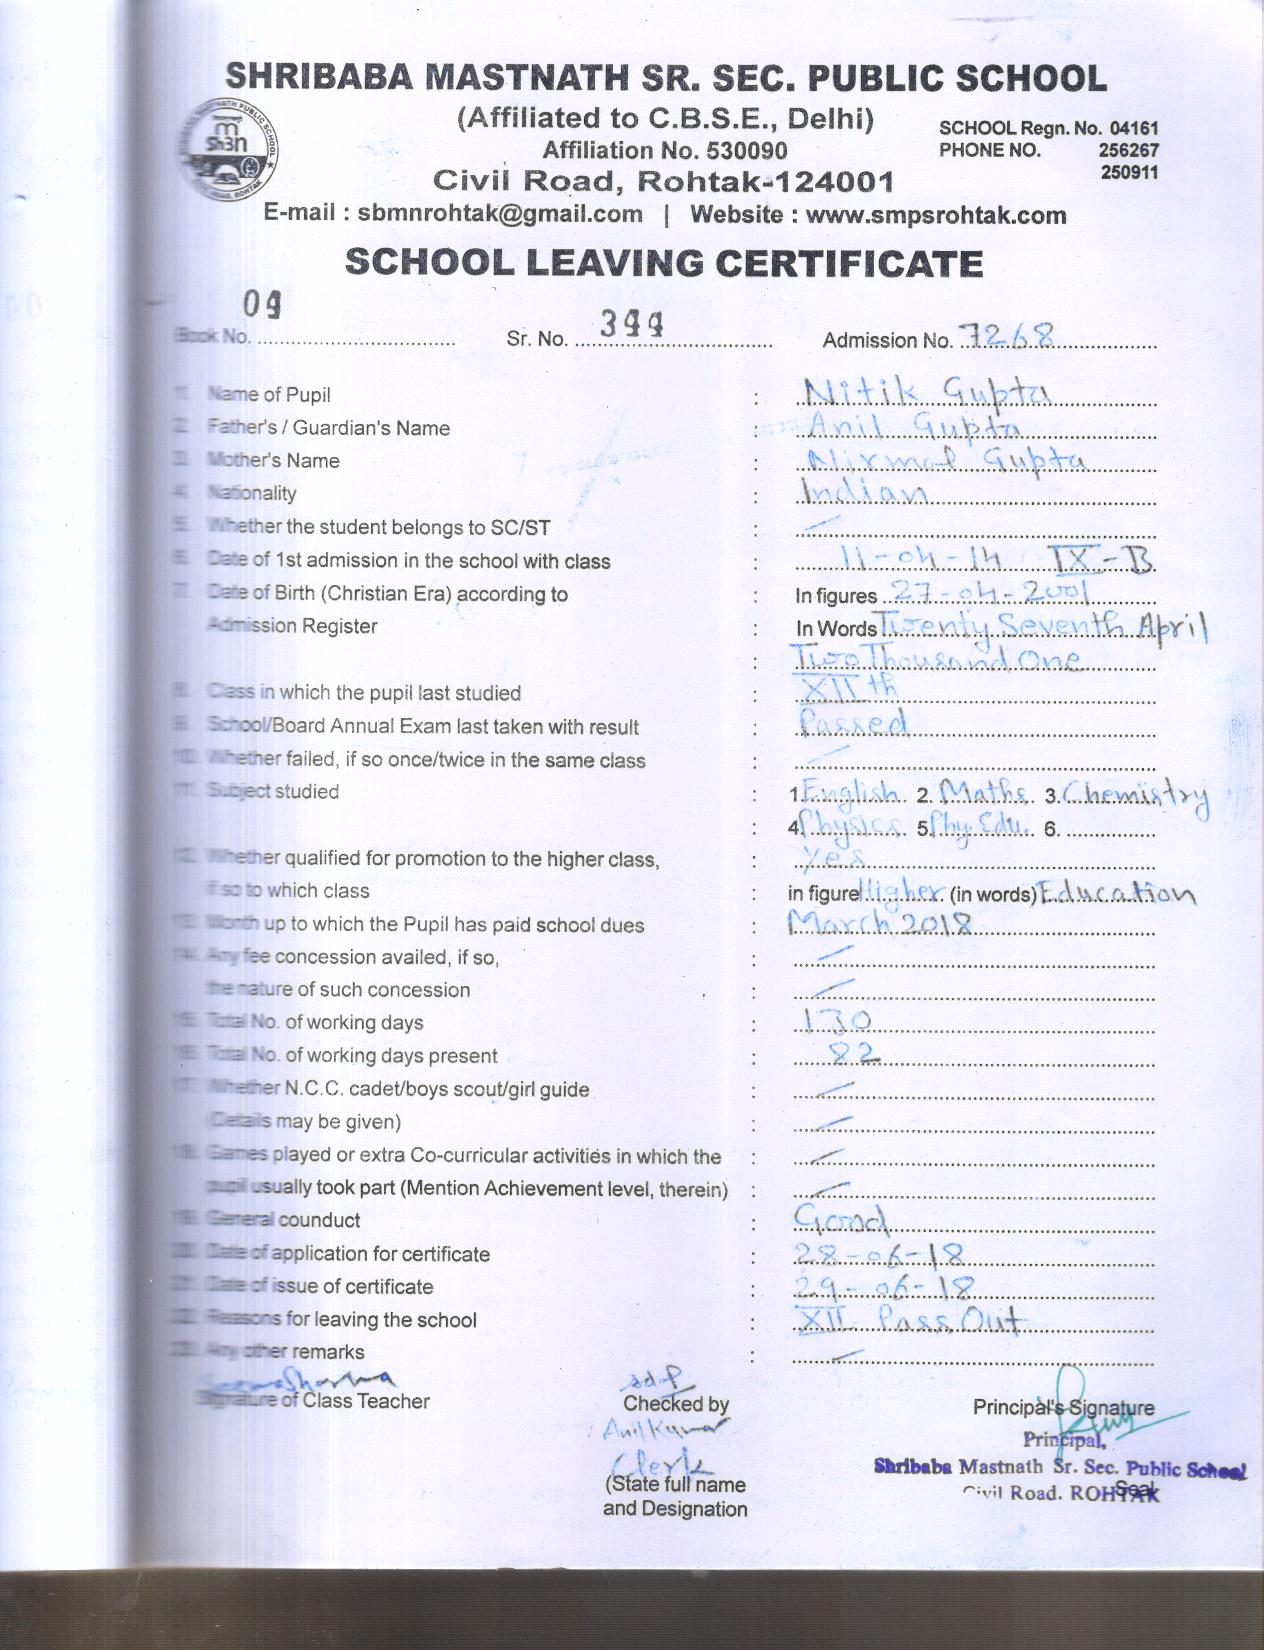 SHRIBABA MASTNATH SR. SEC. PUBLIC SCHOOL
(Affiliated to C.B.S.E., Delhi)
Affiliation No. 530090
SCHOOL Regn. No. 04161
PHONE NO. 256267
250911
Civil Road, Rohtak-124001
E-mail : sbmnrohtak@gmail.com | Website : www.smpsrohtak.com
SCHOOL LEAVING CERTIFICATE
Book No. 04 Sr. No. 344 Admission No. 7268
1. Name of Pupil : Nitik Gupta
2. Father's / Guardian's Name : Anil Gupta
3. Mother's Name : Nirmal Gupta
4. Nationality : Indian
5. Whether the student belongs to SC/ST : —
6. Date of 1st admission in the school with class : 11-04-14 IX-B
7. Date of Birth (Christian Era) according to : In figures 27-04-2001
Admission Register : In Words Twenty Seventh April
: Two Thousand One
8. Class in which the pupil last studied : XIIth
9. School/Board Annual Exam last taken with result : Passed
10. Whether failed, if so once/twice in the same class : —
11. Subject studied : 1. English 2. Maths 3. Chemistry
: 4. Physics 5. Phy. Edu. 6.
12. Whether qualified for promotion to the higher class, : Yes
if so to which class : in figure Higher (in words) Education
13. Month up to which the Pupil has paid school dues : March 2018
14. Any fee concession availed, if so, : —
the nature of such concession : —
15. Total No. of working days : 130
16. Total No. of working days present : 82
17. Whether N.C.C. cadet/boys scout/girl guide : —
(Details may be given) : —
18. Games played or extra Co-curricular activities in which the : —
pupil usually took part (Mention Achievement level, therein) : —
19. General counduct : Good
20. Date of application for certificate : 28-06-18
21. Date of issue of certificate : 29-06-18
22. Reasons for leaving the school : XII Pass Out
23. Any other remarks : —
Sharma
Signature of Class Teacher
sd-P
Checked by
Anil Kumar
Clerk
(State full name
and Designation
Principal's Signature
Principal,
Shribaba Mastnath Sr. Sec. Public School
Civil Road. ROHTAK
Seal